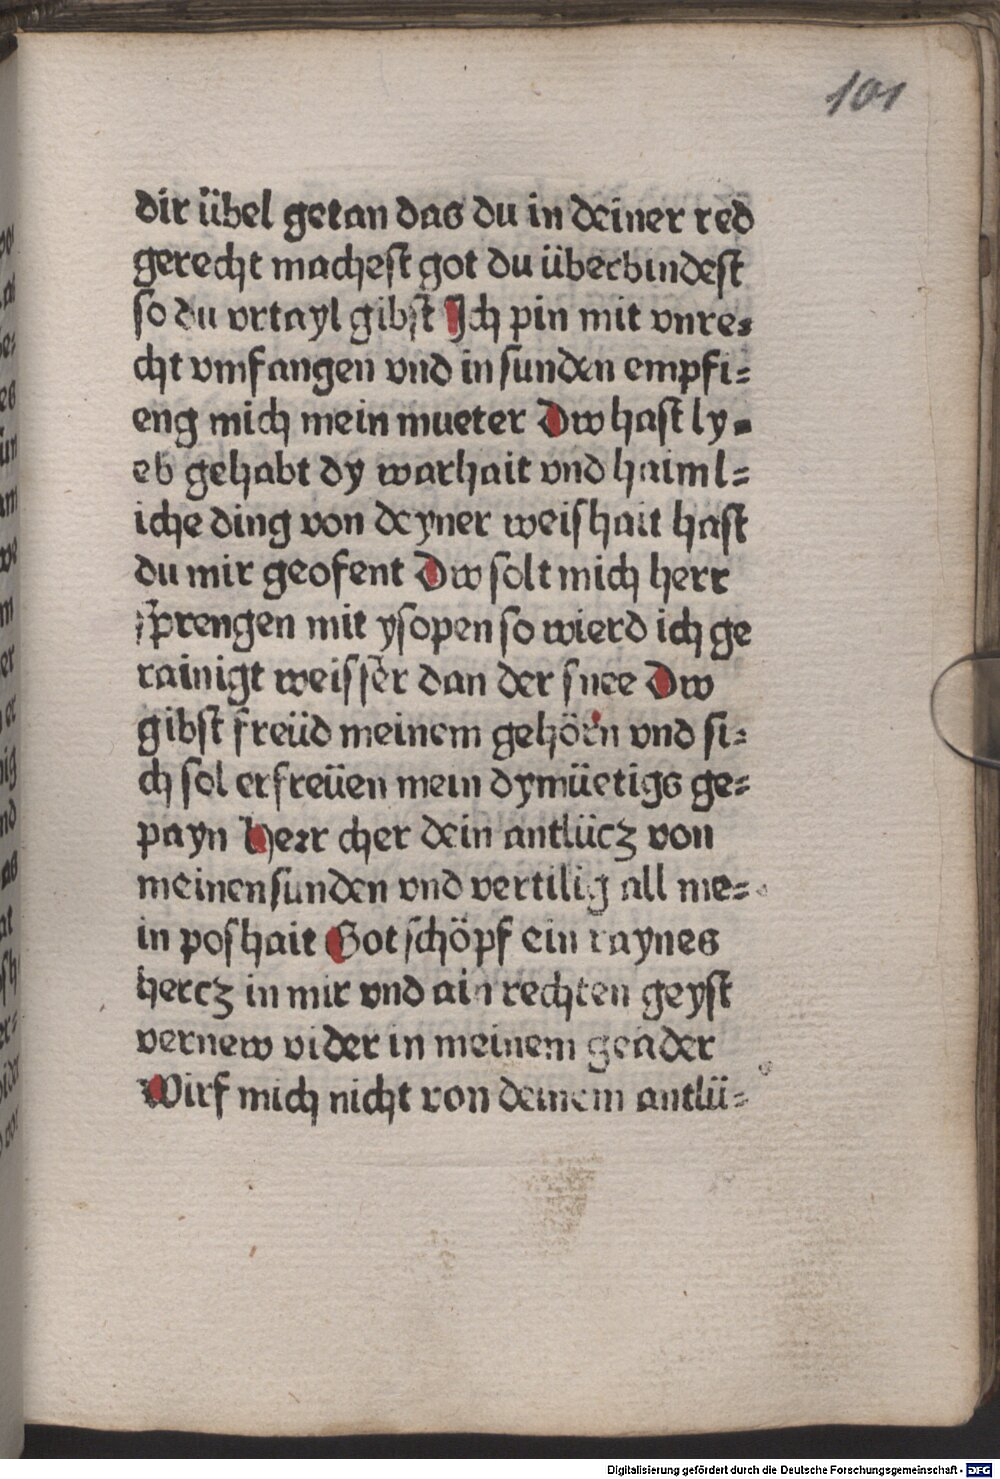 101
dir übel getan das du in deiner red
gerecht machest got du überbindest
so du vrtayl gibst Ich pin mit vnre=
cht vmfangen vnd in sunden empfi=
eng mich mein mueter Dw hast ly=
eb gehabt dy warhait vnd haiml=
iche ding von deyner weishait hast
du mir geofent Dw solt mich herr
sprengen mit ysopen so wierd ich ge
rainigt weisser dan der snee Dw
gibst freüd meinem gehörn vnd si=
ch sol erfreüen mein dymüetigs ge=
payn Herr cher dein antlücz von
meinen sunden vnd vertilig all me=
in poshait Got schöpf ein raynes
hercz in mir vnd ain rechten geyst
vernew vider in meinem geäder
Wirf mich nicht von deinem antlü=
Digitalisierung gefördert durch die Deutsche Forschungsgemeinschaft - DFG